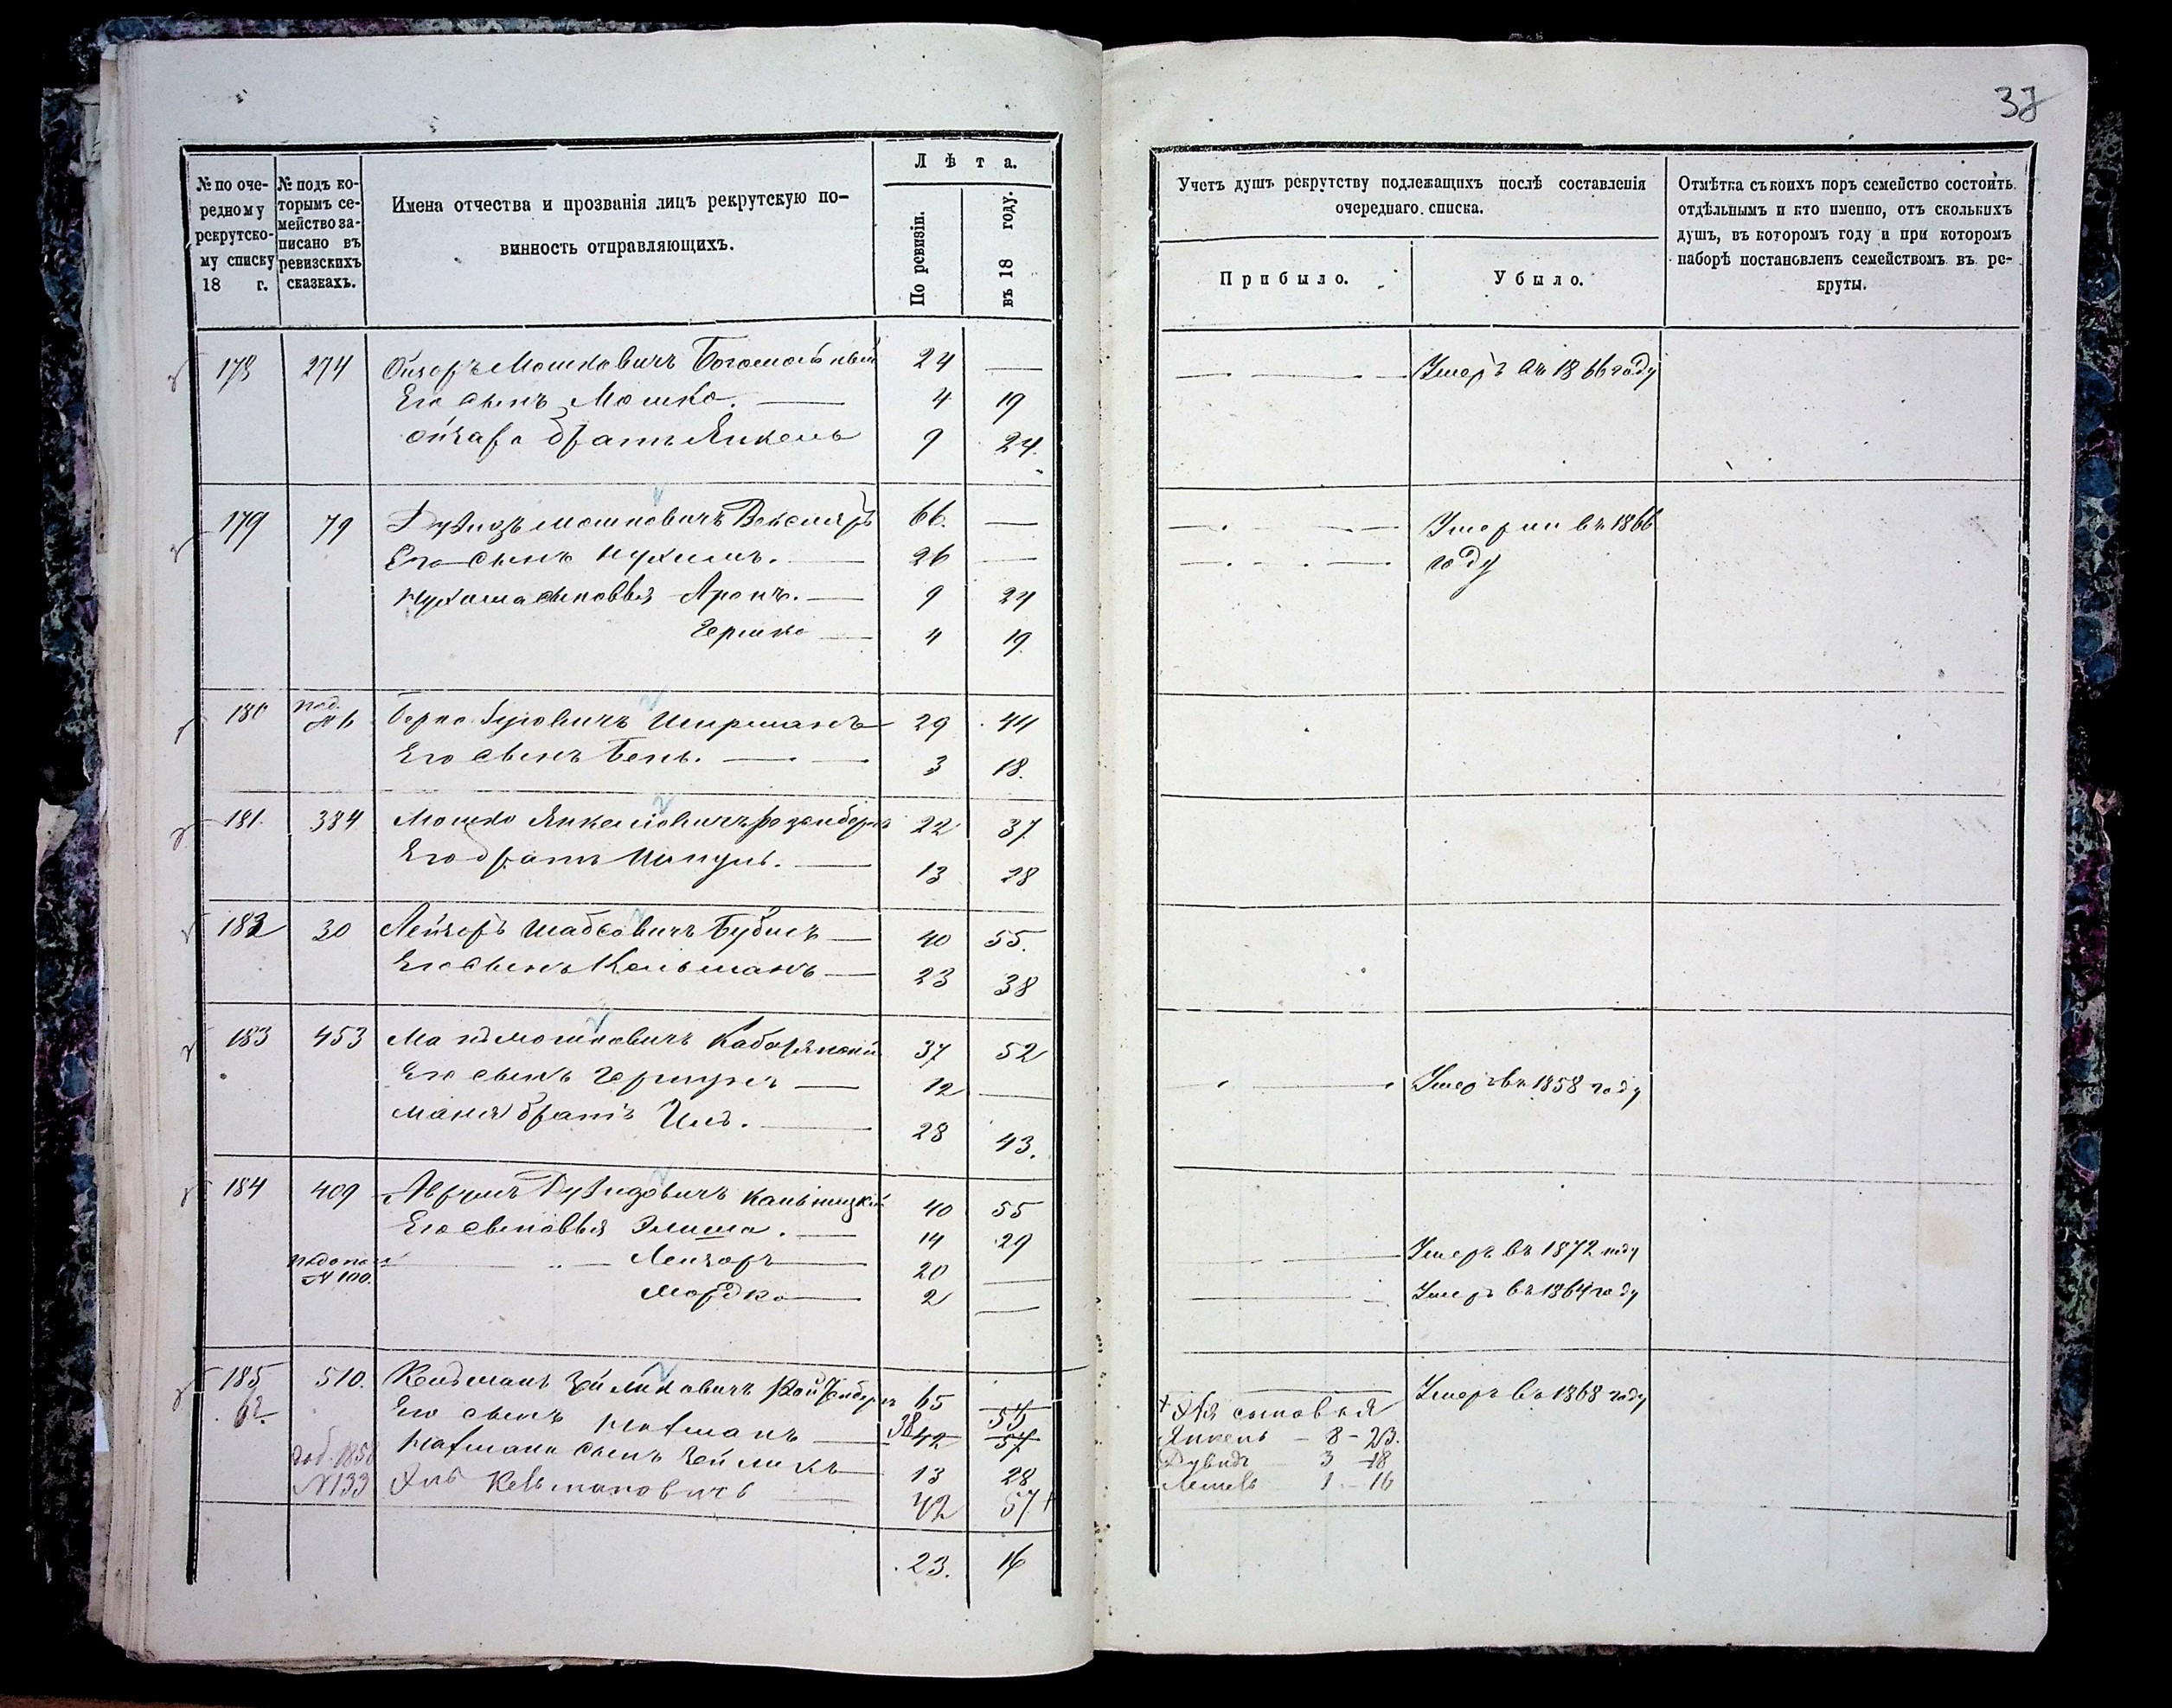 37
№ по оче-
редному
рекрутско-
му списку
18 г.
№ подъ ко-
торымъ се-
мейство за-
писано въ
ревизскихъ
сказкахъ.
Имена отчества и прозванія лицъ рекрутскую по-
винность отправляющихъ.
Лѣта.
По ревизіи.
въ 18 году.
Учетъ душъ рекрутству подлежащихъ послѣ составленія
очереднаго списка.
Прибыло.
Убыло.
Отмѣтка съ коихъ поръ семейство состоитъ
отдѣльнымъ и кто именно, отъ сколькихъ
душъ, въ которомъ году и при которомъ
наборѣ поставленъ семействомъ въ ре-
круты.
178 274 Ойзоръ Мошковичъ Богомольный 24 — Умеръ въ 1866 году
Его сынъ Мошко. 4 19
Ойзора братъ Янкель 9 24.
179 79 Дувидъ Мошковичъ Векслеръ 66. — Умерли въ 1866
Его сынъ Нухимъ. 26 — году
Нухима сыновья Аронъ. 9 24
Гершко 4 19
180 Берко Ицковичъ Ширманъ 29 44
Его сынъ Бень. 3 18.
181. 384 Мошко Янкелiовичъ Розенбергъ 22 37
Его братъ 13 28
182 30 Лейзоръ Шабсовичъ Бубисъ 40 55.
Его сынъ Кельманъ 23 38
183 453 Мошковичъ 37 52
Его сынъ 12 — Умеръ въ 1858 году
братъ 28 43.
184 409 Аврумъ Дувидовичъ Кальницкій 40 55
Его сыновья 14 29
Лейзоръ 20 — Умеръ въ 1872 году
№ 100. Мордко 2 — Умеръ въ 1864 году
185 510. Кельманъ Зейликовичъ 65 — Умеръ въ 1868 году
62 Его сынъ Нафманъ 38 42 57
Нафмана сынъ Зейликъ 13 28
1858 №133 Кельмановичъ 42 57 +
+ сыновья
Янкель — 8 – 23.
Дувидъ 3 – 18
1 – 16
23. 16